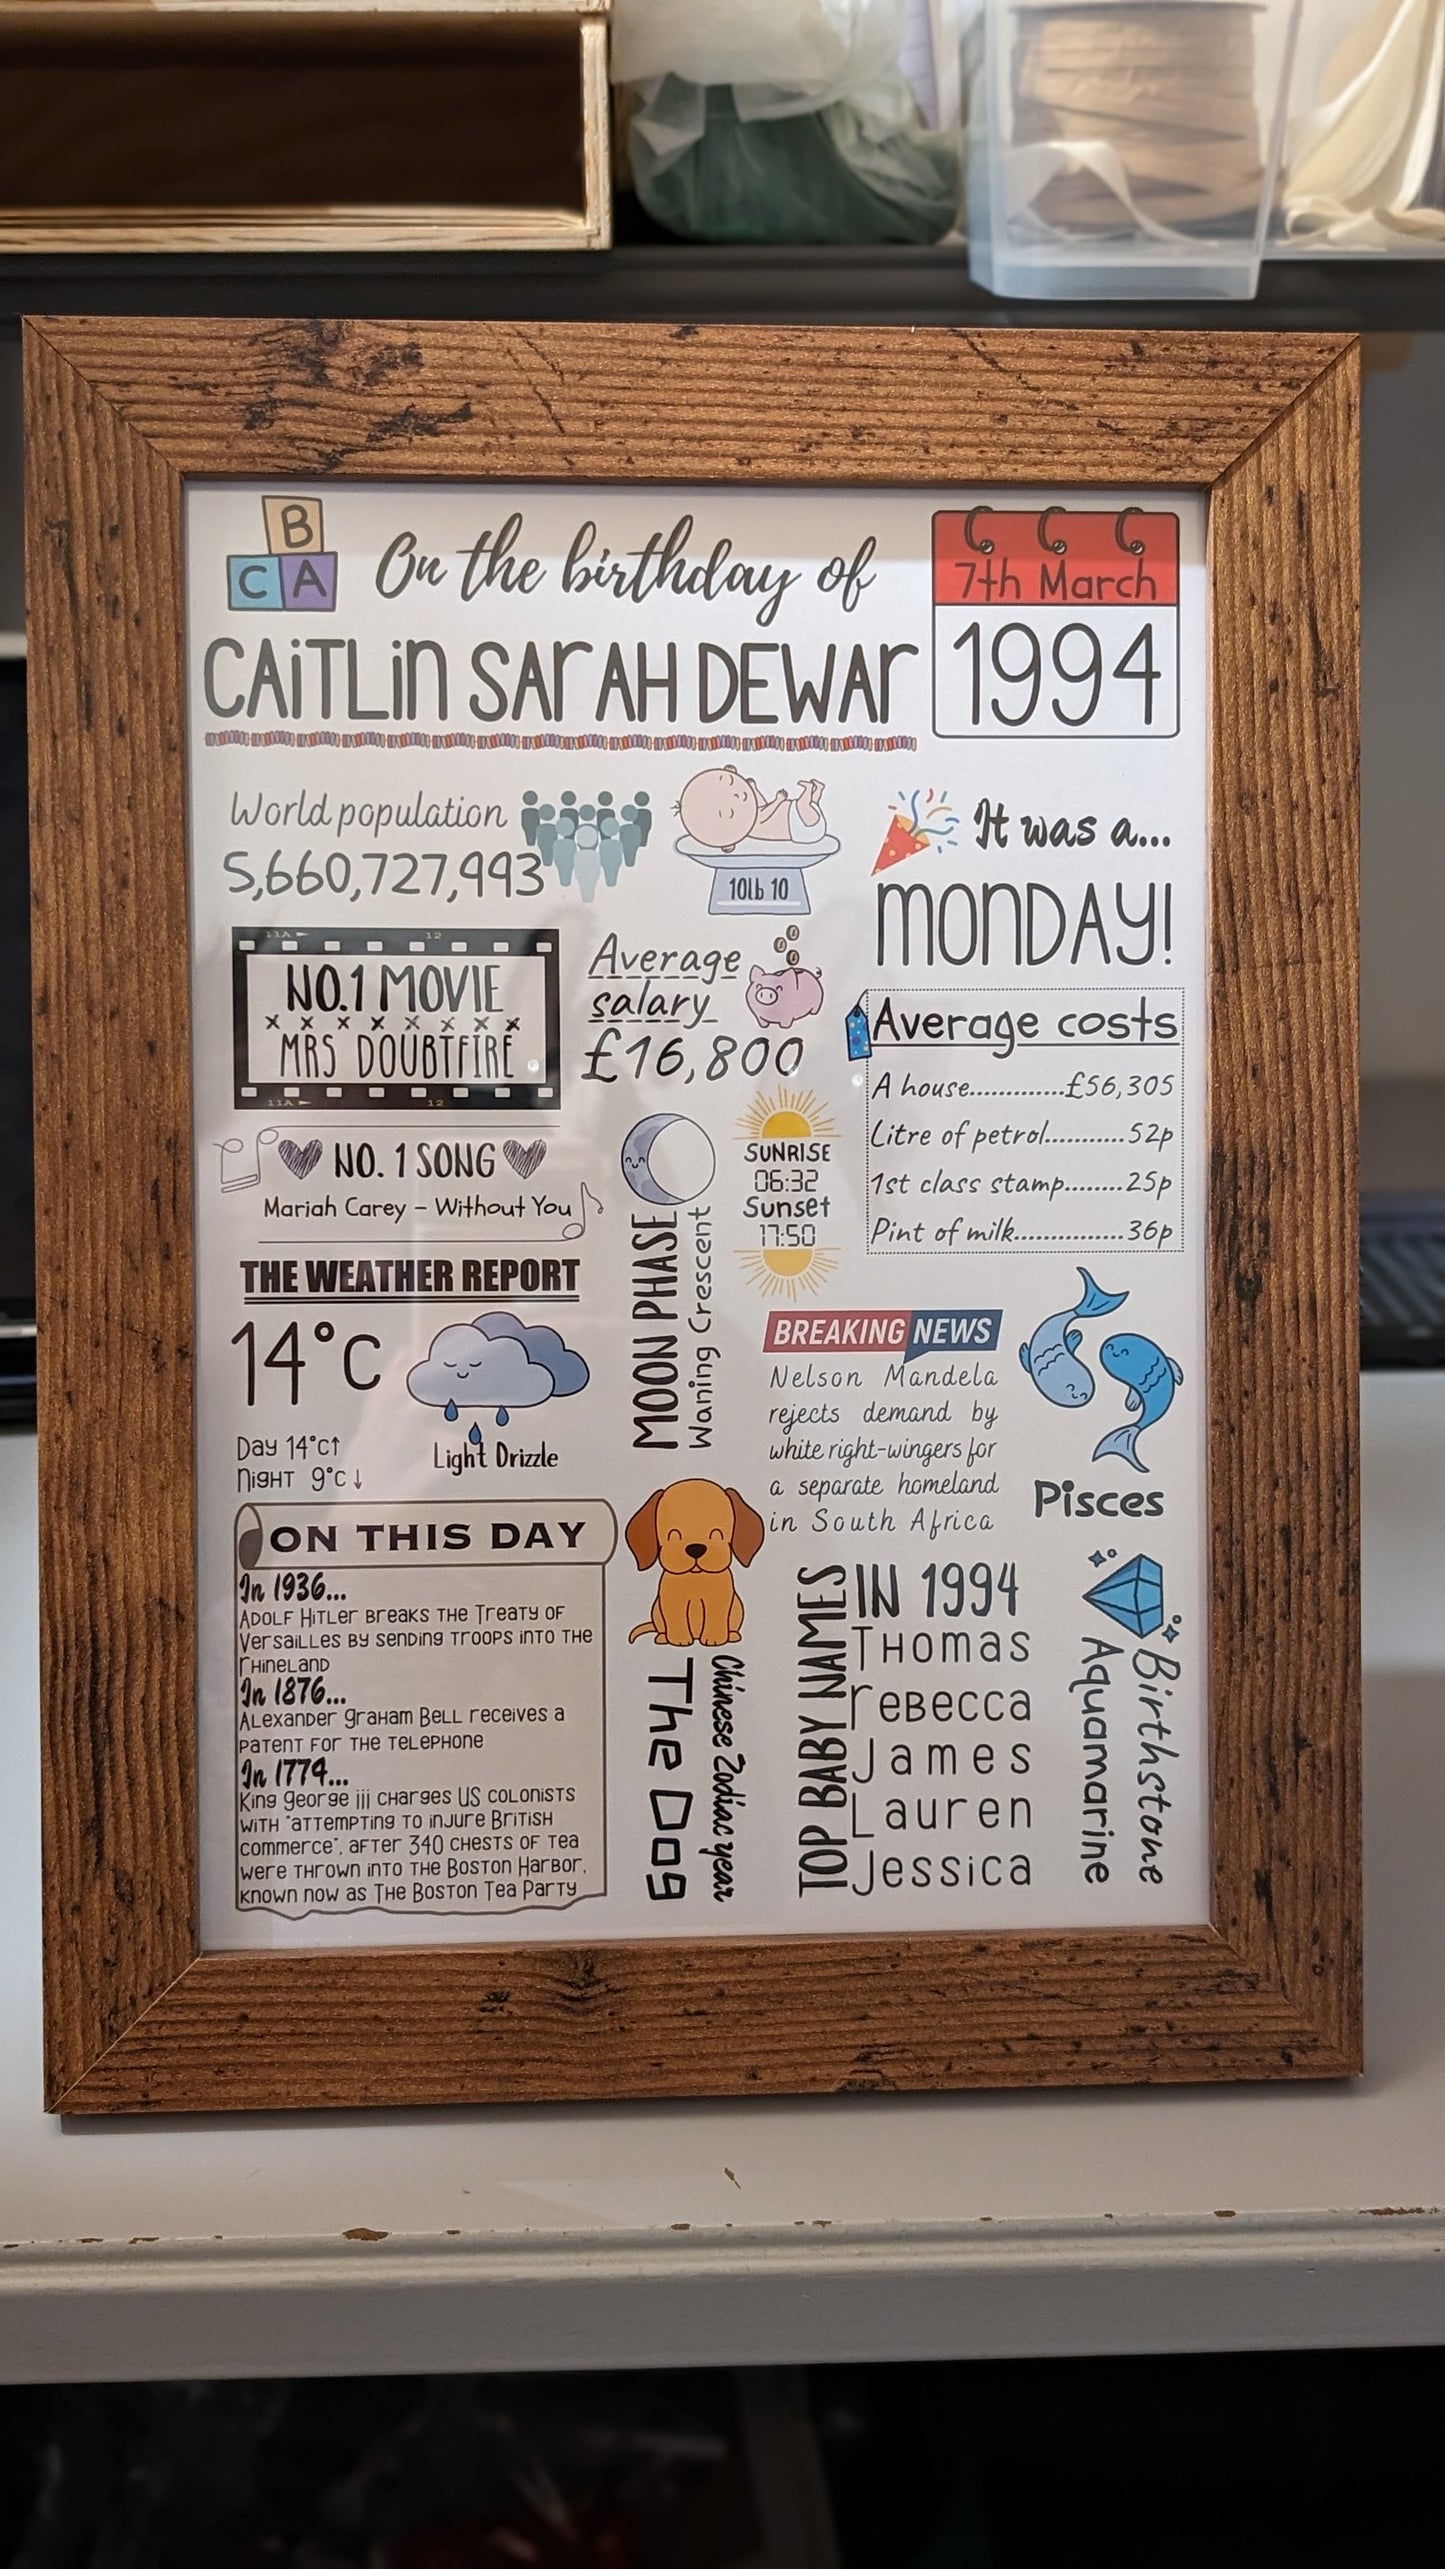 B
C A
On the birthday of
CAITLIN SARAH DEWAR
7th March
1994
World population
5,660,727,993
10lb 10
It was a...
MONDAY!
11A 12
NO.1 MOVIE
x x x x x x x x
MRS DOUBTFIRE
11A 12
Average
salary
£16,800
Average costs
A house.............£56,305
Litre of petrol...........52p
1st class stamp........25p
Pint of milk...............36p
NO. 1 SONG
Mariah Carey – Without You
MOON PHASE
Waning Crescent
SUNRISE
06:32
Sunset
17:50
THE WEATHER REPORT
14°C
Day 14°C↑
Night 9°C↓
Light Drizzle
BREAKING NEWS
Nelson Mandela
rejects demand by
white right-wingers for
a separate homeland
in South Africa
Pisces
ON THIS DAY
In 1936...
Adolf Hitler breaks the Treaty of
Versailles by sending troops into the
Rhineland
In 1876...
Alexander Graham Bell receives a
patent for the telephone
In 1774...
King George iii charges US colonists
with "attempting to injure British
commerce", after 340 chests of tea
were thrown into the Boston Harbor,
known now as The Boston Tea Party
Chinese Zodiac year
The Dog
TOP BABY NAMES
IN 1994
Thomas
Rebecca
James
Lauren
Jessica
Birthstone
Aquamarine